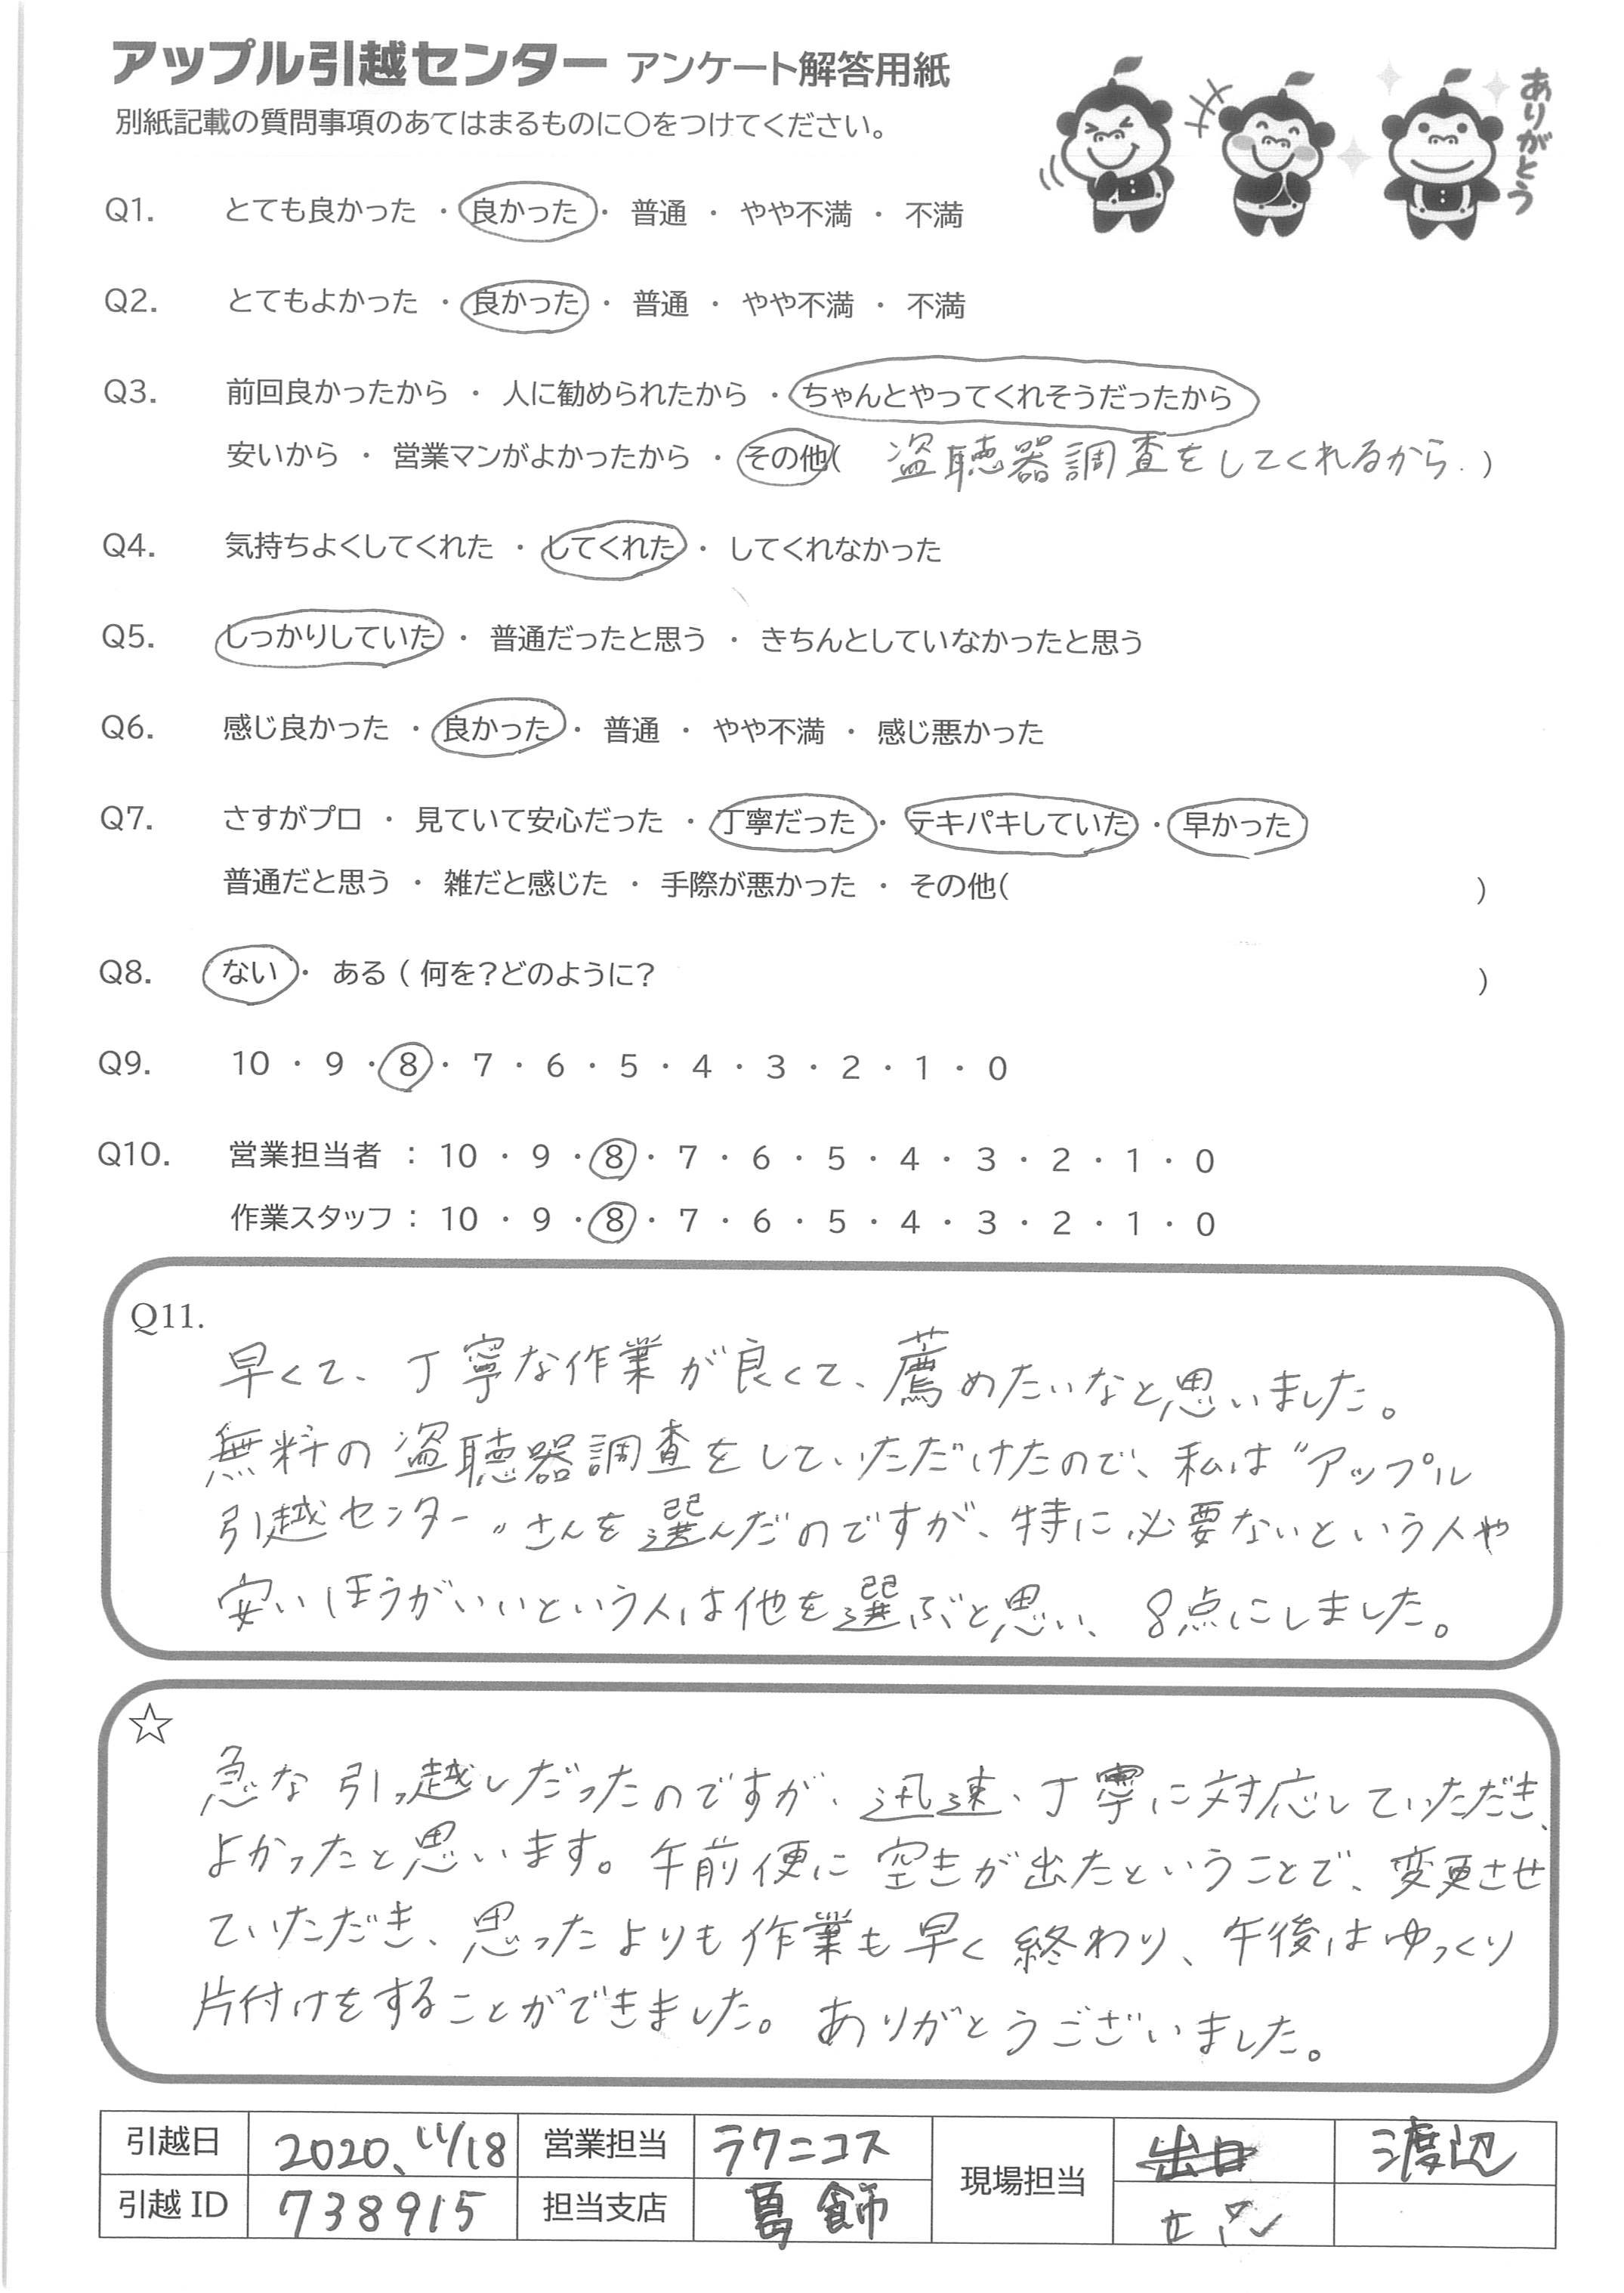 アップル引越センター アンケート解答用紙
別紙記載の質問事項のあてはまるものに○をつけてください。
ありがとう
Q1. とても良かった ・ 良かった ・ 普通 ・ やや不満 ・ 不満
Q2. とてもよかった ・ 良かった ・ 普通 ・ やや不満 ・ 不満
Q3. 前回良かったから ・ 人に勧められたから ・ ちゃんとやってくれそうだったから
安いから ・ 営業マンがよかったから ・ その他( 盗聴器調査をしてくれるから. )
Q4. 気持ちよくしてくれた ・ してくれた ・ してくれなかった
Q5. しっかりしていた ・ 普通だったと思う ・ きちんとしていなかったと思う
Q6. 感じ良かった ・ 良かった ・ 普通 ・ やや不満 ・ 感じ悪かった
Q7. さすがプロ ・ 見ていて安心だった ・ 丁寧だった ・ テキパキしていた ・ 早かった
普通だと思う ・ 雑だと感じた ・ 手際が悪かった ・ その他( )
Q8. ない ・ ある ( 何を?どのように? )
Q9. 10 ・ 9 ・ 8 ・ 7 ・ 6 ・ 5 ・ 4 ・ 3 ・ 2 ・ 1 ・ 0
Q10. 営業担当者 : 10 ・ 9 ・ 8 ・ 7 ・ 6 ・ 5 ・ 4 ・ 3 ・ 2 ・ 1 ・ 0
作業スタッフ : 10 ・ 9 ・ 8 ・ 7 ・ 6 ・ 5 ・ 4 ・ 3 ・ 2 ・ 1 ・ 0
Q11.
早くて、丁寧な作業が良くて、薦めたいなと思いました。
無料の盗聴器調査をしていただけたので、私は“アップル
引越センター”さんを選んだのですが、特に必要ないという人や
安いほうがいいという人は他を選ぶと思い、8点にしました。
☆
急な引っ越しだったのですが、迅速、丁寧に対応していただき、
よかったと思います。午前便に空きが出たということで、変更させ
ていただき、思ったよりも作業も早く終わり、午後はゆっくり
片付けをすることができました。ありがとうございました。
引越日 2020、11/18 営業担当 ラクニコス 現場担当 出口 渡辺
引越 ID 738915 担当支店 葛飾